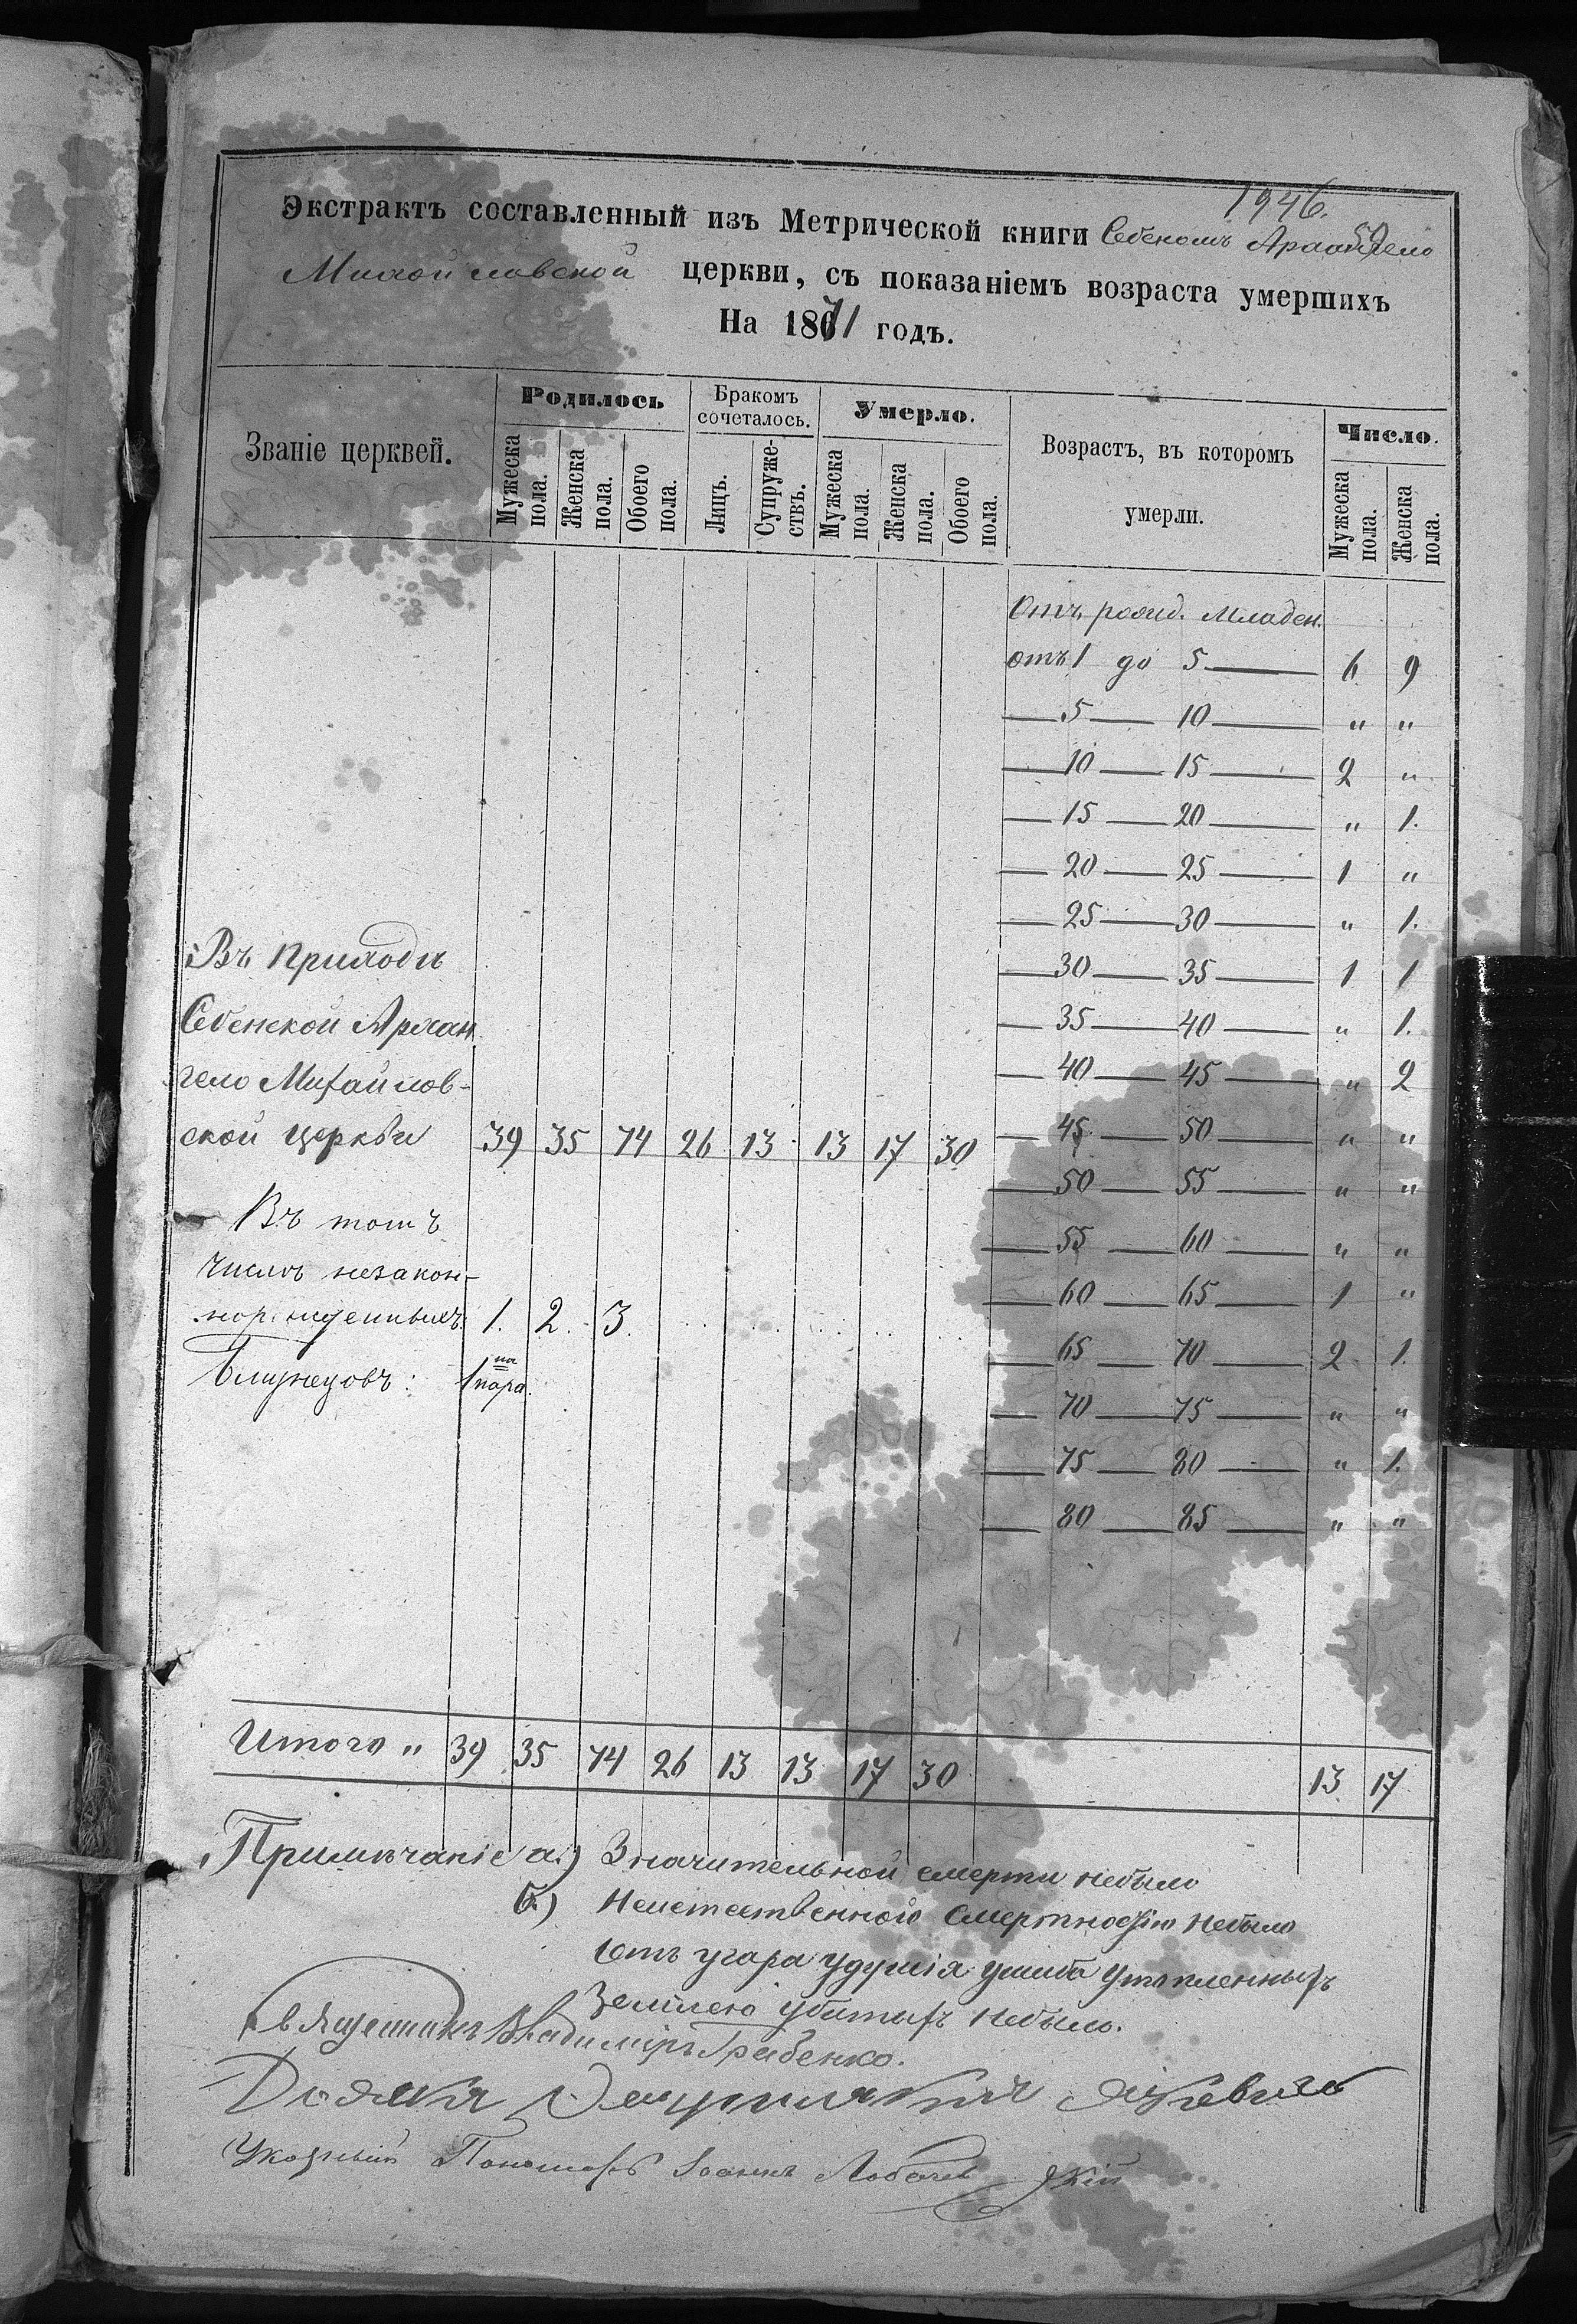 1946.
Экстрактъ составленный изъ Метрической книги Себеномъ Архангело
Михайловской церкви, съ показаніемъ возраста умершихъ
На 1871 годъ.
Званіе церквей.
Родилось
Бракомъ сочеталось.
Умерло.
Возрастъ, въ которомъ умерли.
Число.
Мужеска пола.
Женска пола.
Обоего пола.
Лицъ.
Супружествъ.
Мужеска пола.
Женска пола.
Обоего пола.
Мужеска пола.
Женска пола.
Отъ рожд. Младен.
отъ 1 до 5 — 6 9
— 5 — 10 — " "
— 10 — 15 — 2 "
— 15 — 20 — " 1.
— 20 — 25 — 1 "
— 25 — 30 — " 1.
— 30 — 35 — 1 1
— 35 — 40 — " 1.
— 40 — 45 — " 2
— 45 — 50 — " "
— 50 — 55 — " "
— 55 — 60 — " "
— 60 — 65 — 1 "
— 65 — 70 — 2 1.
— 70 — 75 — " "
— 75 — 80 — " 1.
— 80 — 85 — " "
Въ Приходѣ
Себенской Архан
гело Михайлов-
ской церкви 39 35 74 26 13 13 17 30
Въ томъ
числѣ незакон-
норожденныхъ 1. 2. 3.
Близнецовъ: 1 пара.
Итого " 39 35 74 26 13 13 17 30 13 17
Примѣчаніе а.) Значительной смерти небыло
б.) Неестественного смертностію небыло
Отъ угара удушія ушиба утопленныхъ
Землею убитыхъ небыло.
Священникъ Владиміръ Грабенко.
Указный Пономарь Іоаннъ Лобачевскій